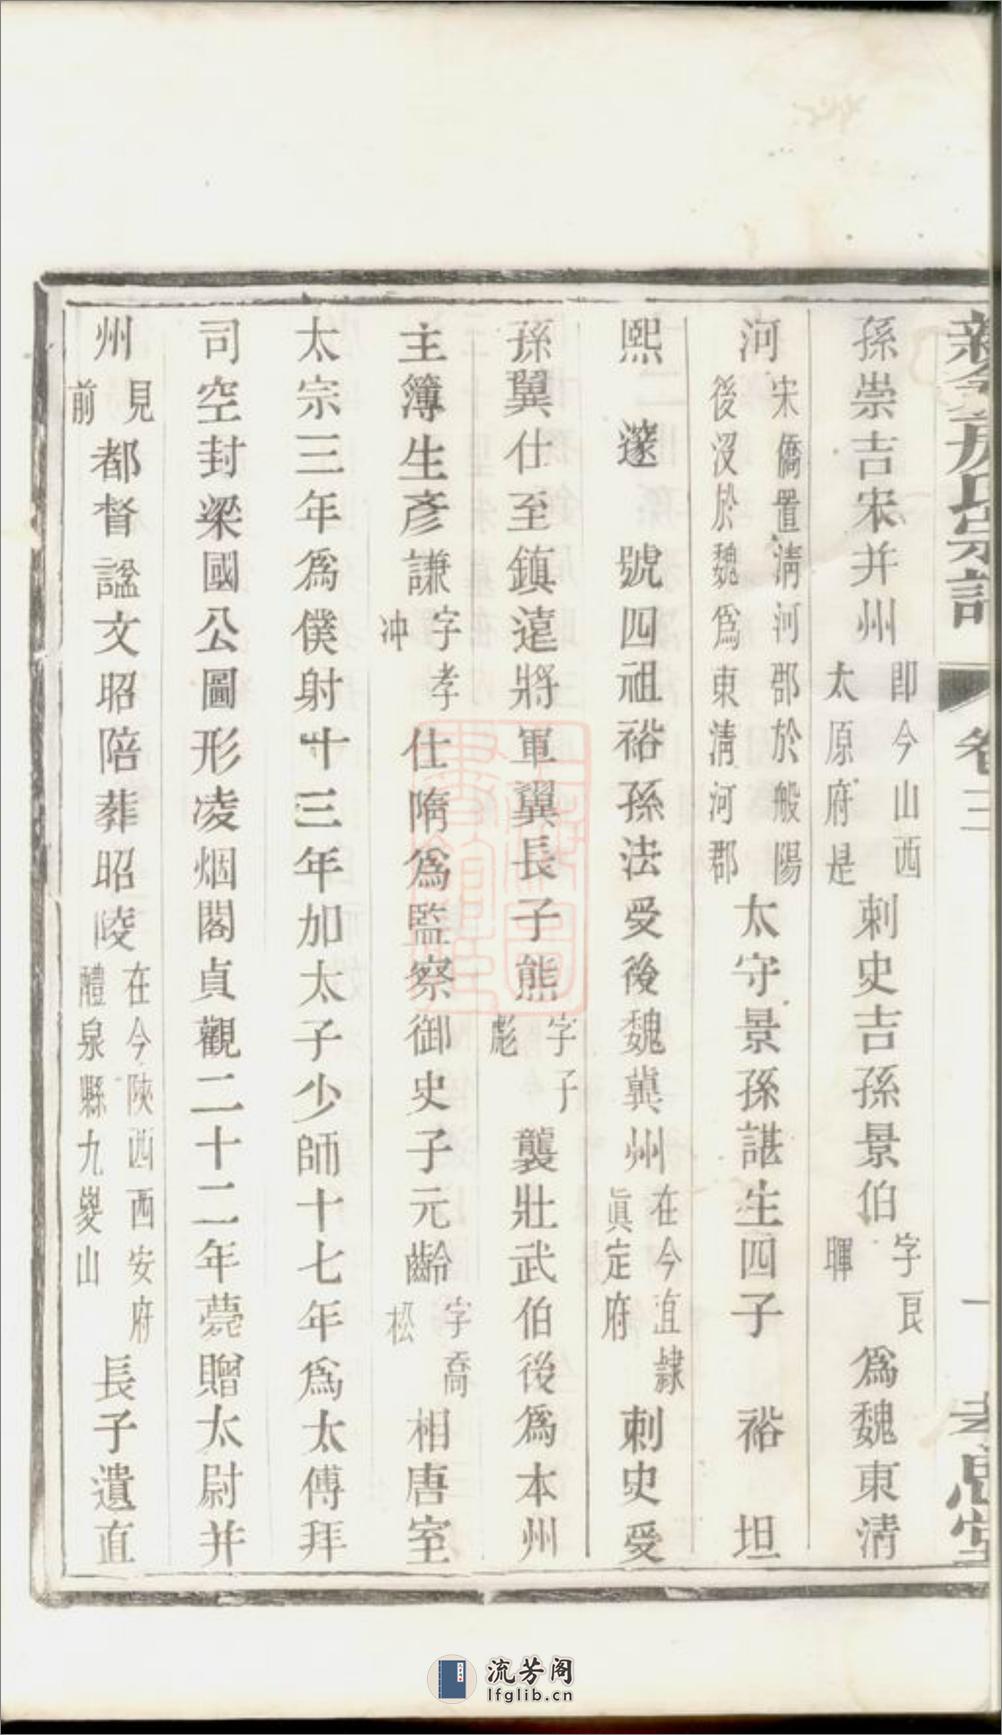 孫崇吉宋并州即今山西太原府是刺史吉孫景伯字良暉爲魏東清
河宋僑置淸河郡於般陽後没於魏爲東淸河郡太守景孫諶生四子 裕 坦
熙 邃 號四祖裕孫法受後魏冀州在今直隷眞定府刺史受
孫翼仕至鎮遠將軍翼長子熊字子彪襲壯武伯後爲本州
主簿生彥謙字孝冲仕隋爲監察御史子元齡字喬松相唐室
太宗三年爲僕射十三年加太子少師十七年爲太傅拜
司空封梁國公圖形凌烟閣貞觀二十二年薨贈太尉并
州見前都督諡文昭陪葬昭陵在今陝西西安府醴泉縣九嵏山長子遺直
卷三
一
流芳阁
lfglib.cn